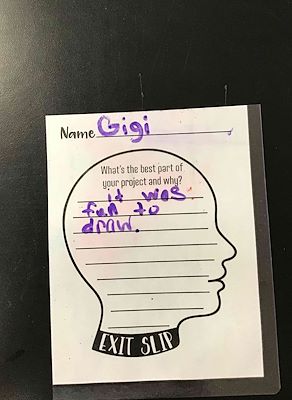 Name Gigi
What's the best part of
your project and why?
it was
fun to
draw.
EXIT SLIP